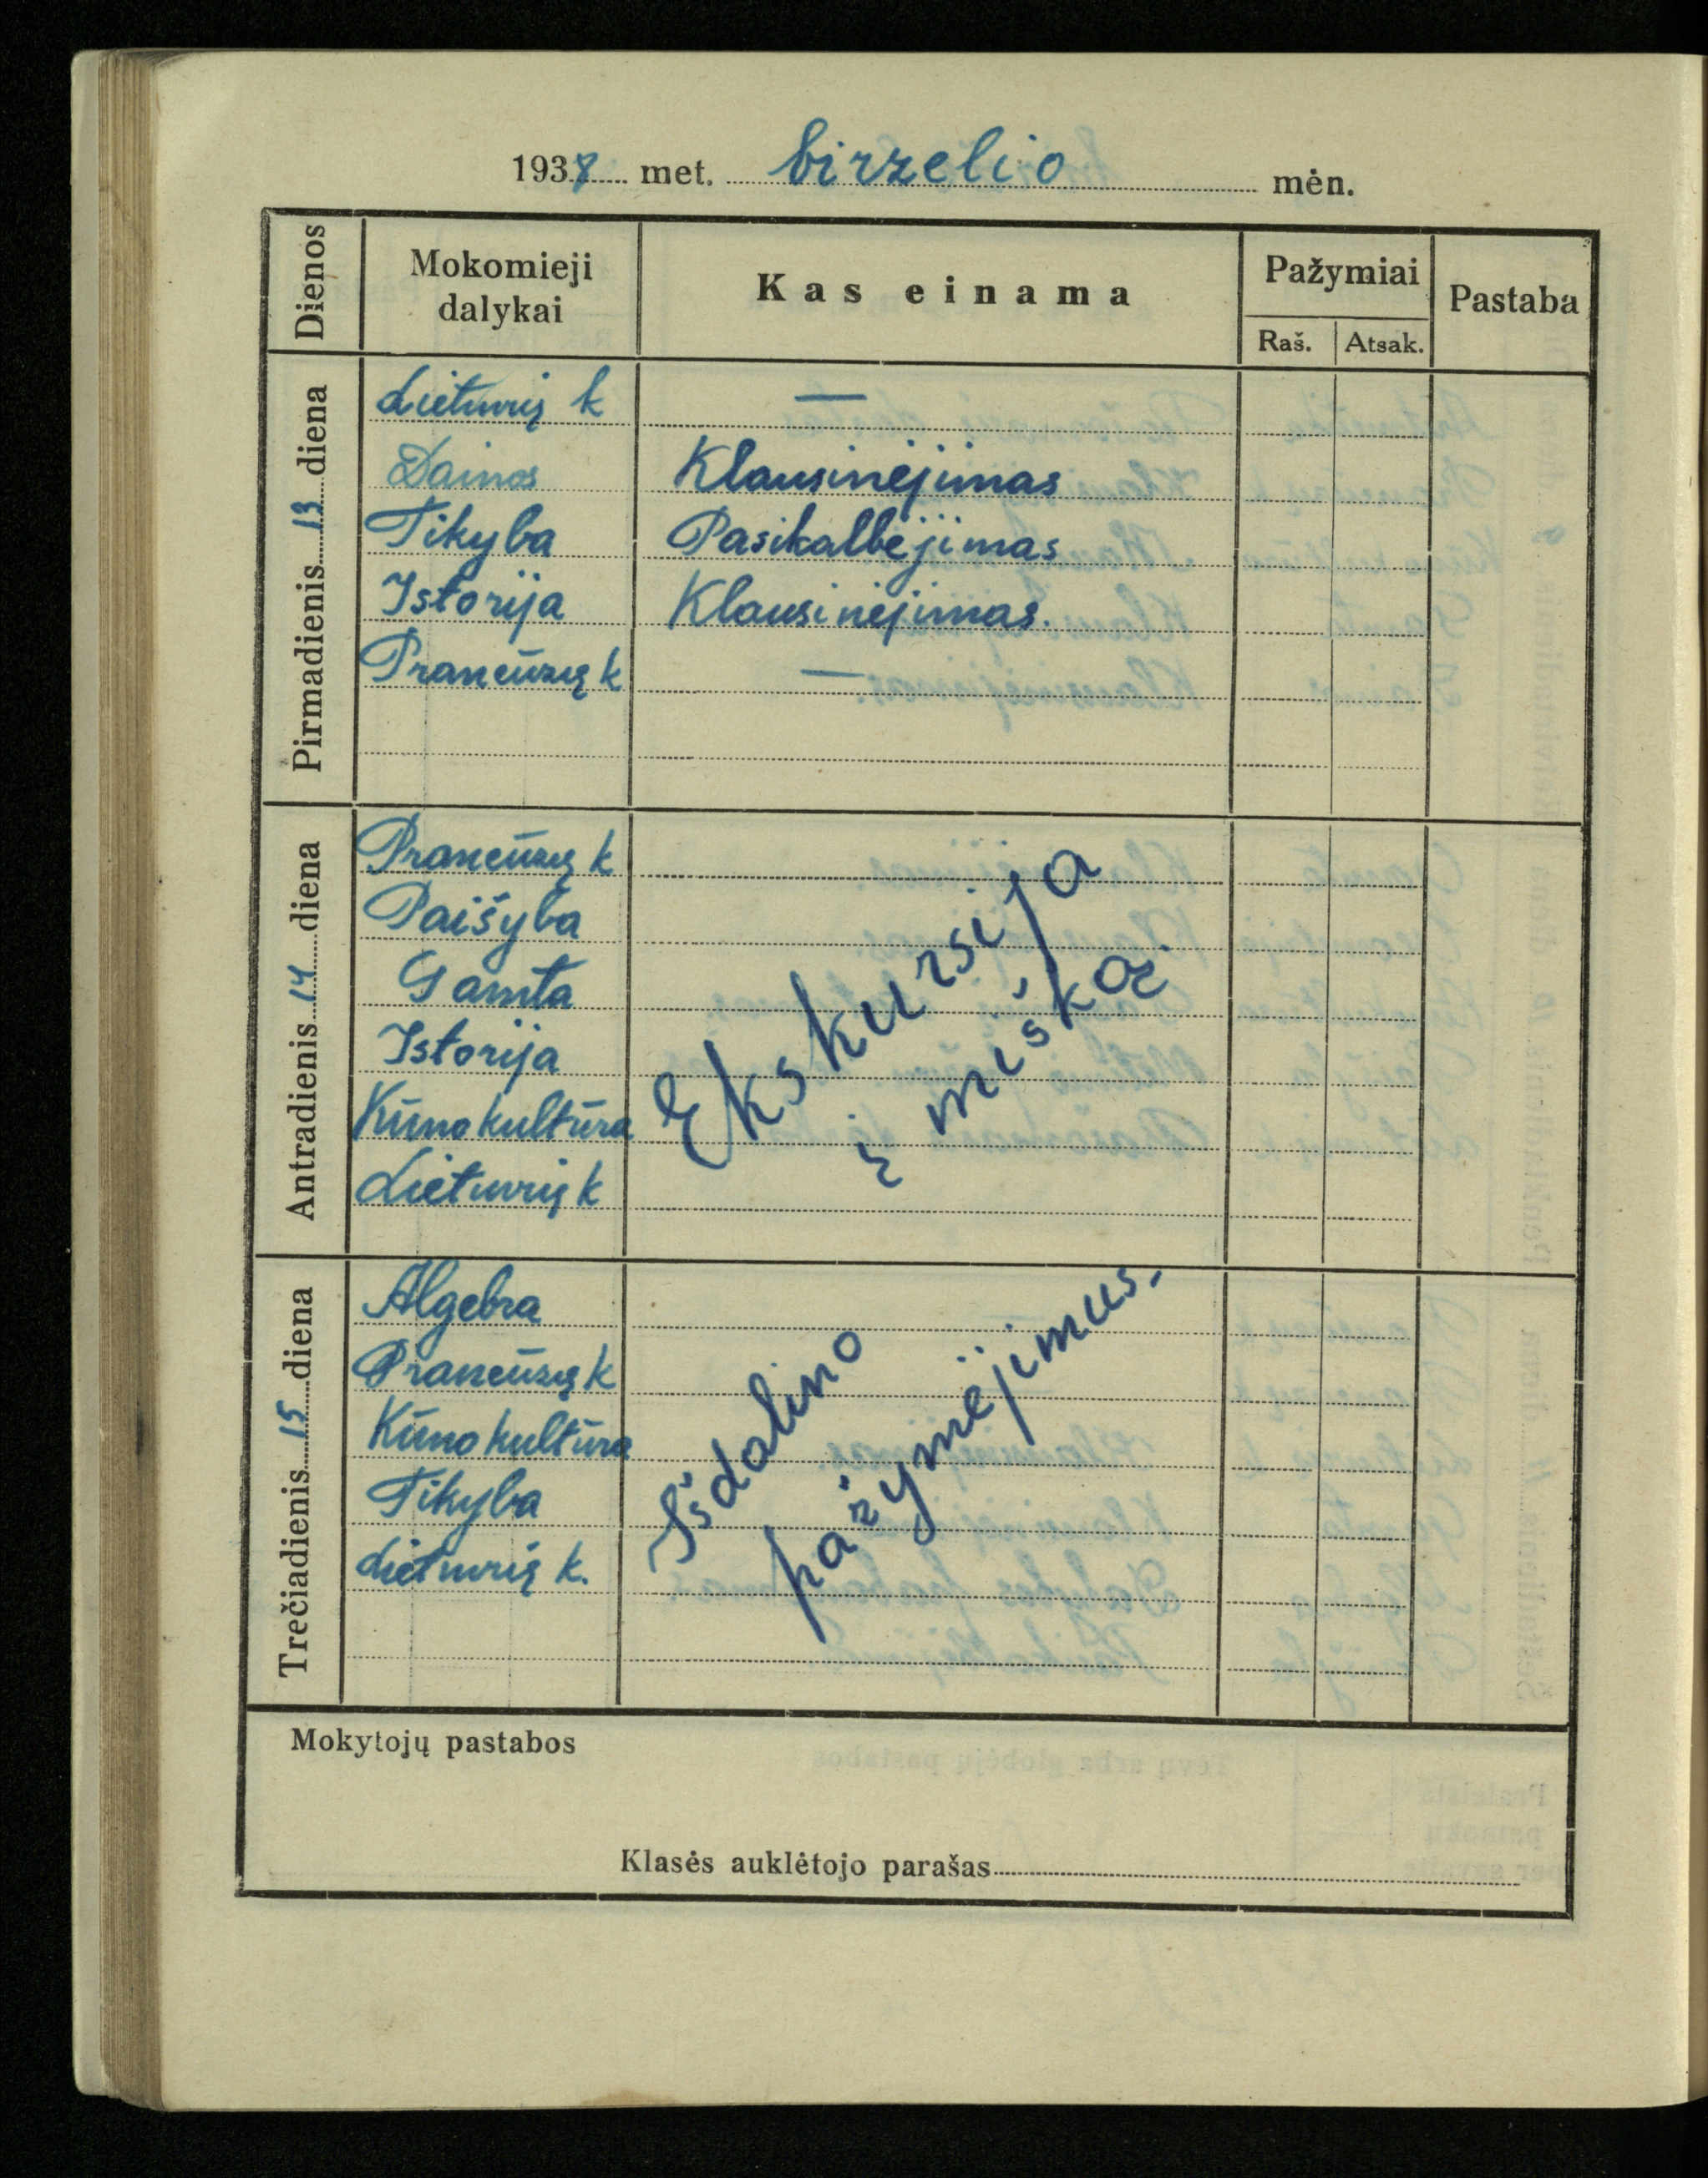 1938 met. birzelio mėn.
Dienos Mokomieji dalykai Kas einama Pažymiai Pastaba
Raš. Atsak.
Pirmadienis 13 diena
Lietuvių k —
Dainos Klausinėjimas
Tikyba Pasikalbėjimas
Istorija Klausinėjimas.
Prancūzų k —
Antradienis 14 diena
Prancūzų k
Paišyba
Gamta
Istorija
Kūno kultūra
Lietuvių k
Ekskursija
į mišką.
Trečiadienis 15 diena
Algebra
Prancūzų k
Kūno kultūra
Tikyba
Lietuvių k.
Išdalino
pažymėjimus.
Mokytojų pastabos
Klasės auklėtojo parašas